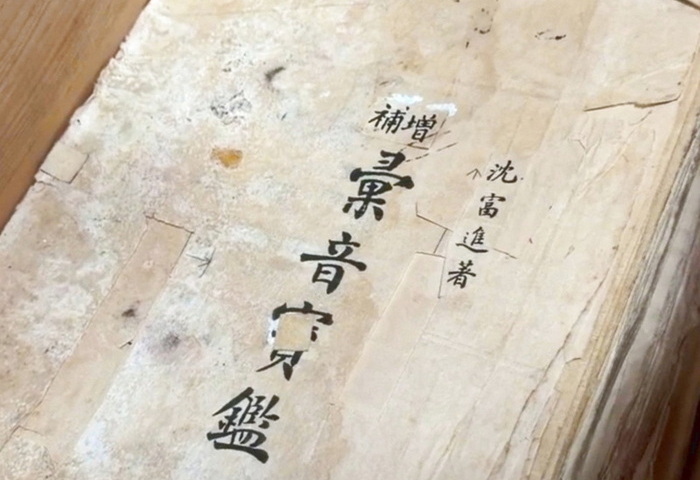 沈富進著
增補
彙音寶鑑